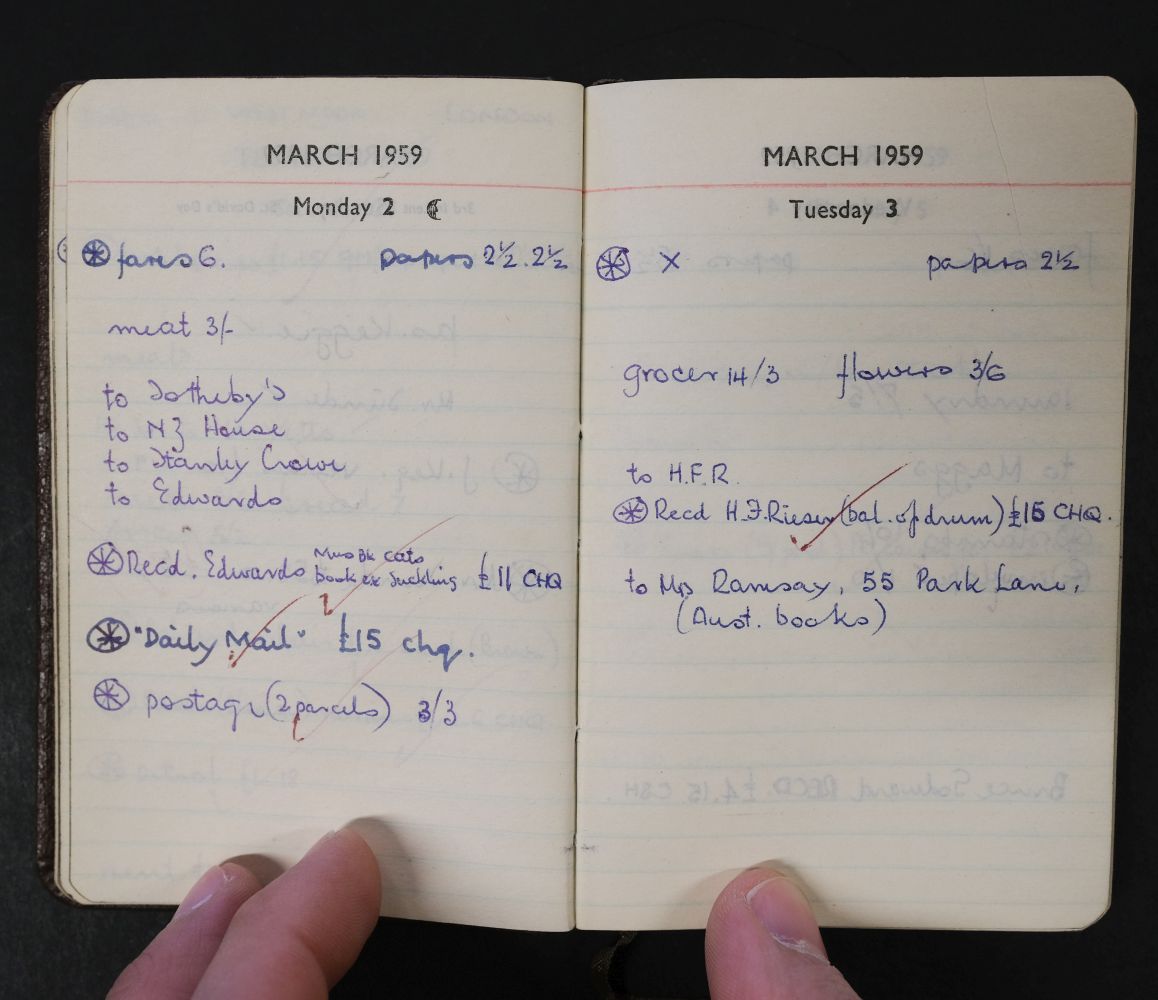 MARCH 1959
Monday 2
fares 6. papers 2½. 2½
meat 3/-
to Sotheby's
to NZ House
to Stanley Crowe
to Edwards
Recd. Edwards Mus Bk cats book ex Suckling £11 CHQ
"Daily Mail" £15 chq.
postage (2 parcels) 3/3
MARCH 1959
Tuesday 3
X papers 2½
grocer 14/3 flowers 3/6
to H.F.R.
Recd H.F. (bal. of drum) £15 CHQ.
to Mrs Ramsay, 55 Park Lane,
(Aust. books)